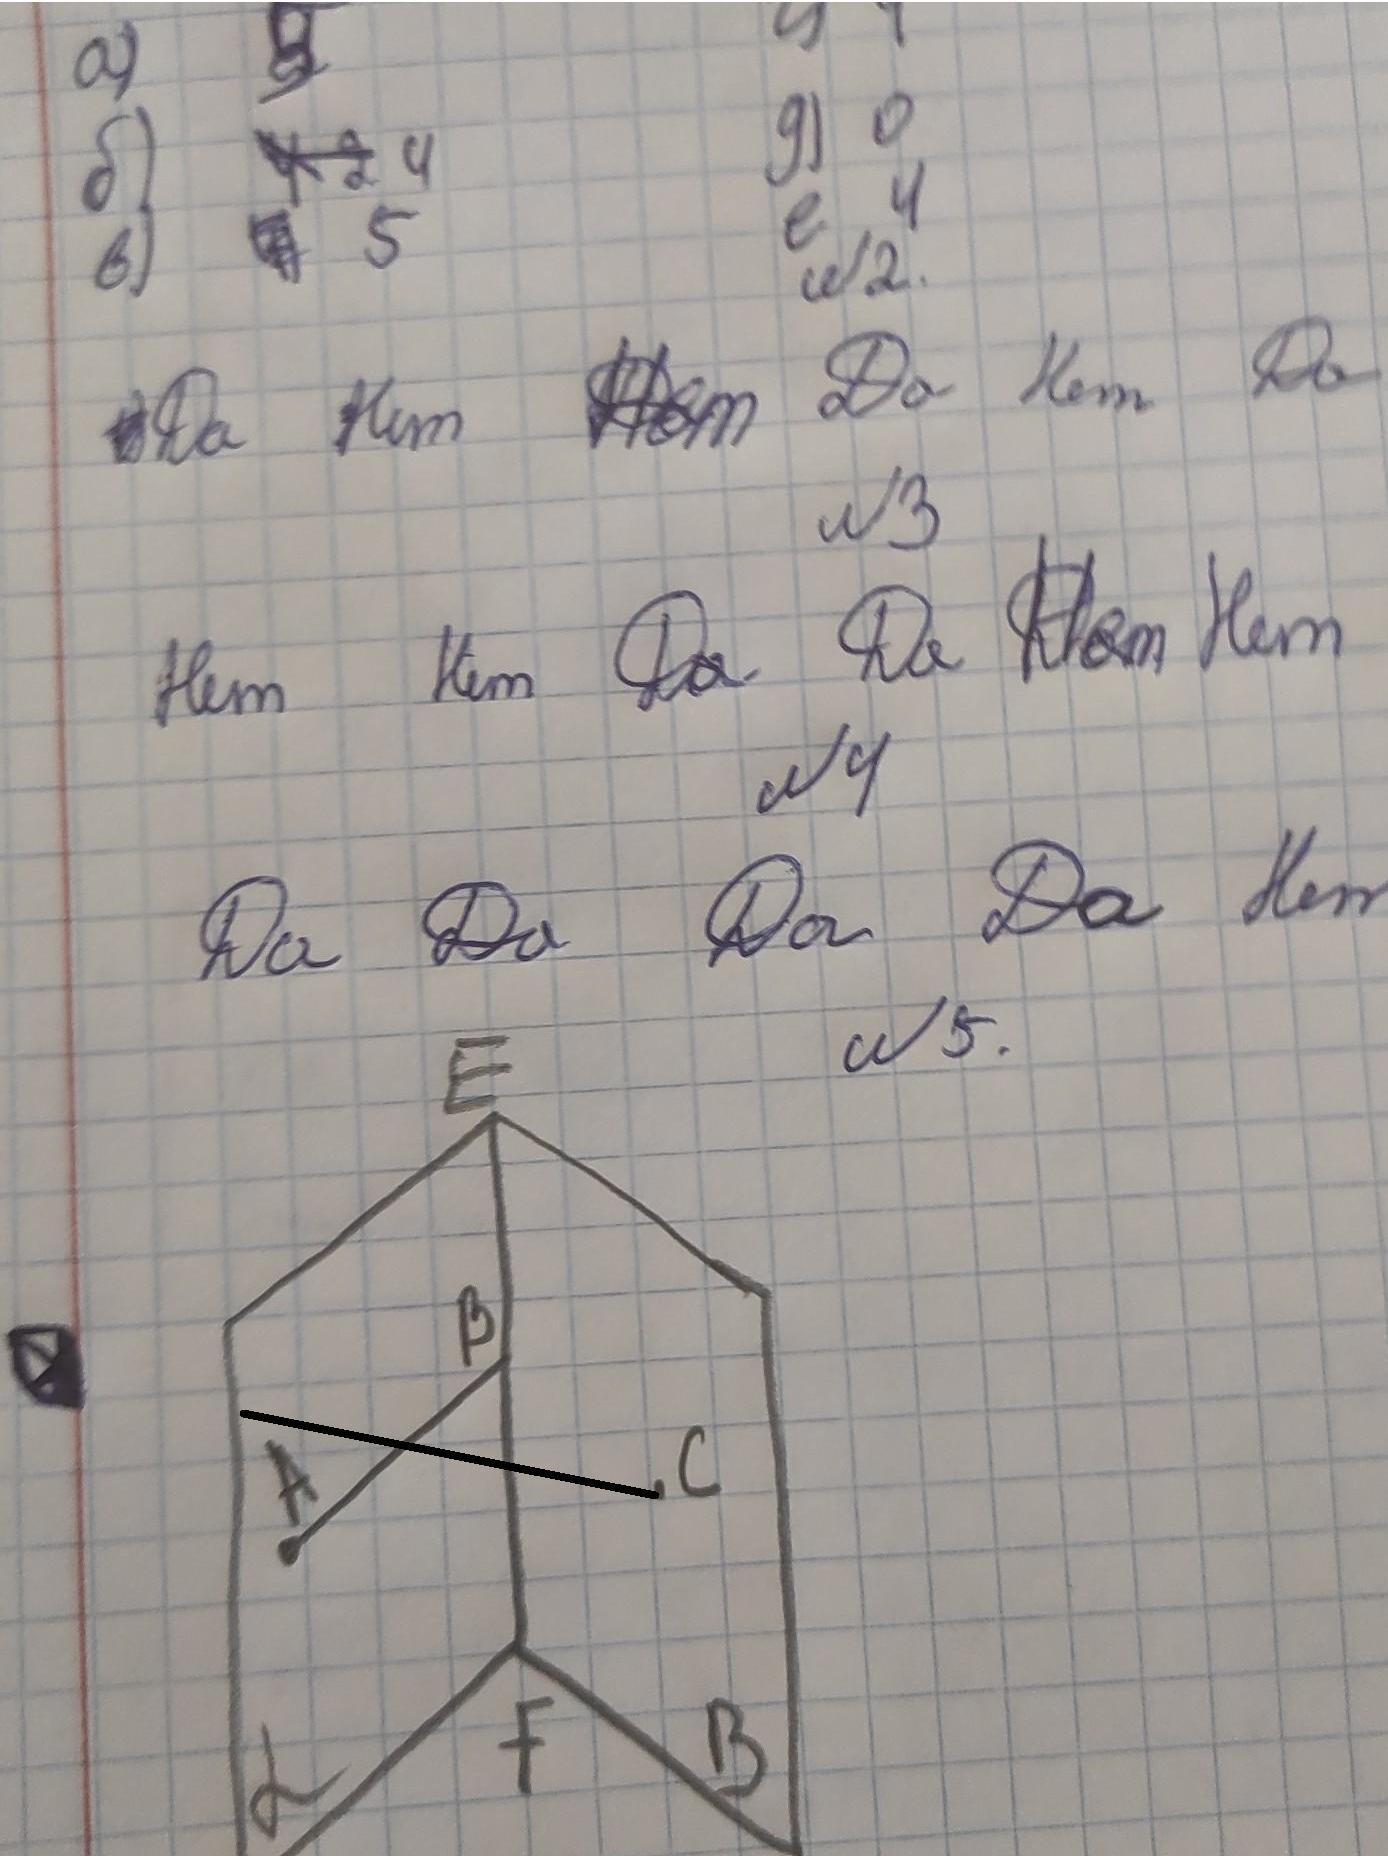 а)
б) 4
в) 5
д) 0
е 4
№2.
Да Нет Нет Да Нет Да
№3
Нет Нет Да Да Нет Нет
№4
Да Да Да Да Нет
№5.
E
B
A C
F B
α